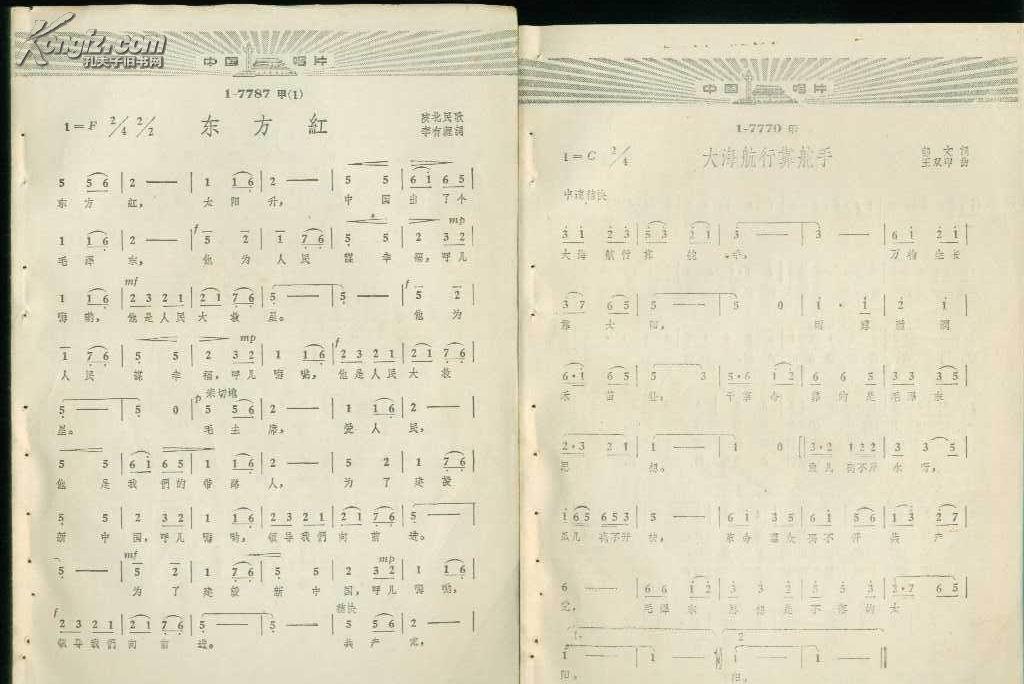 Kongfz.com
孔夫子旧书网
中国 唱片
1-7787 甲(1)
1=F 2/4 2/2 东方紅 陕北民歌
李有源詞
5 5 6 | 2 — | 1 1 6 | 2 — | 5 5 | 6 1 6 5 |
东方 紅, 太阳 升, 中国 出了个
mp
1 1 6 | 2 — | 5 2 | 1 7 6 | 5 5 | 2 3 2 |
毛泽 东, 他为 人民 謀幸 福,呼儿
mf f
1 1 6 | 2 3 2 1 | 2 1 7 6 | 5 — | 5 — | 5 2 |
嗨哟, 他是人民 大救 星。 他为
mp f
1 7 6 | 5 5 | 2 3 2 | 1 1 6 | 2 3 2 1 | 2 1 7 6 |
人民 謀幸 福,呼儿 嗨哟, 他是人民 大救
p 亲切地
5 — | 5 0 | 5 5 6 | 2 — | 1 1 6 | 2 — |
星。 毛主 席, 爱人 民,
5 5 | 6 1 6 5 | 1 1 6 | 2 — | 5 2 | 1 7 6 |
他是 我們的 带路 人, 为了 建設
5 5 | 2 3 2 | 1 1 6 | 2 3 2 1 | 2 1 7 6 | 5 — |
新中 国,呼儿 嗨哟, 領导我們 向前 进。
mf mp
5 — | 5 2 | 1 7 6 | 5 5 | 2 3 2 | 1 1 6 |
为了 建設 新中 国,呼儿 嗨哟,
f 稍快
2 3 2 1 | 2 1 7 6 | 5 — | 5 — | 5 5 6 | 2 — |
領导我們 向前 进。 共产 党,
中国 唱片
1-7770 甲
1=C 2/4 大海航行靠舵手 郁文 詞
王双印 曲
中速稍快
3 1 2 3 | 5 3 2 1 | 3 — | 3 — | 6 1 2 1 |
大海 航行 靠舵 手, 万物 生长
3 7 6 5 | 5 — | 5 0 | 1 · 1 | 2 1 |
靠太 阳, 雨露 滋潤
6·1 6 5 | 5 3 | 5·6 1 2 | 6 6 5 | 3 3 3 5 |
禾苗 壮, 干革命 靠的是 毛泽东
2·3 2 1 | 1 — | 1 0 | 3·2 1 2 2 | 3 3 5 |
思 想。 魚儿 离不开 水呀,
1 6 5 6 5 3 | 5 — | 6 1 3 5 | 6 1 5 6 | 1 3 2 7 |
瓜儿 离不开 秧, 革命 羣众 离不开 共产
6 — | 6 6 1 2 | 3 3 2 3 | 5 5 3 | 2·7 6 5 |
党, 毛泽东 思想是 不落的 太
1. 2.
1 — | 1 — | 1 — | 1 — |
阳, 阳。